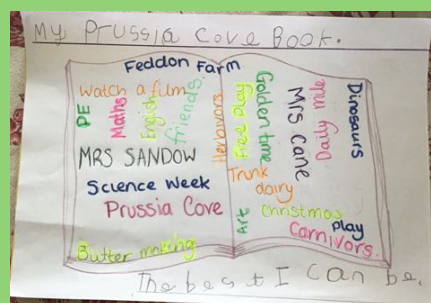 My Prussia Cove Book.
Feddon Farm
Watch a film
PE
Maths
English
friends
MRS SANDOW
Science Week
Prussia Cove
Butter making
Herbivors
Free Play
Golden time
Mrs Cane
Daily mile
Dinosaurs
Trunk
dairy
Art
Christmas
play
Carnivors.
The best I can be.